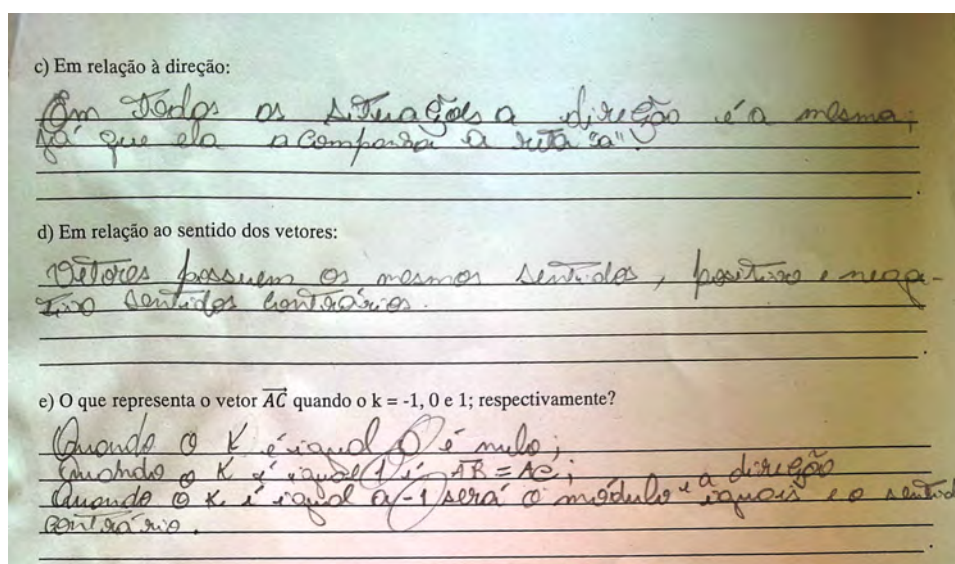 c) Em relação à direção:
Em todas as situações a direção é a mesma,
já que ela acompanha a reta "a".
d) Em relação ao sentido dos vetores:
Vetores possuem os mesmos sentidos, positivo e nega-
tivo sentidos contrários.
e) O que representa o vetor AC quando o k = -1, 0 e 1; respectivamente?
Quando o K é igual 0 é nulo;
Quando o K é igual 1 é AB = AC;
Quando o K é igual a -1 será o módulo e a direção iguais e o sentido
contrário.